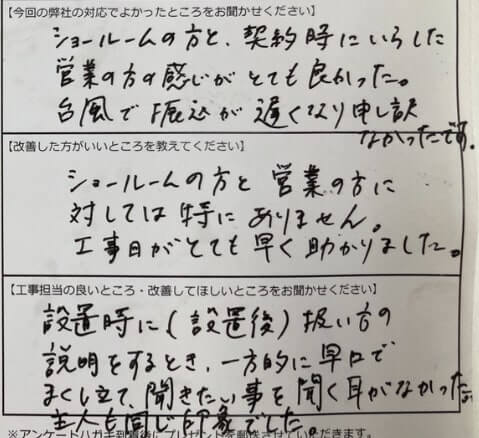 【今回の弊社の対応でよかったところをお聞かせください】
ショールームの方と、契約時にいらした
営業の方の感じがとても良かった。
台風で振込が遅くなり申し訳
なかったです。
【改善した方がいいところを教えてください】
ショールームの方と営業の方に
対しては特にありません。
工事日がとても早く助かりました。
【工事担当の良いところ・改善してほしいところをお聞かせください】
設置時に(設置後)扱い方の
説明をするとき、一方的に早口で
まくし立て、聞きたい事を聞く耳がなかった。
主人も同じ印象でした。
※アンケートハガキ到着後にプレゼントを郵送させていただきます。